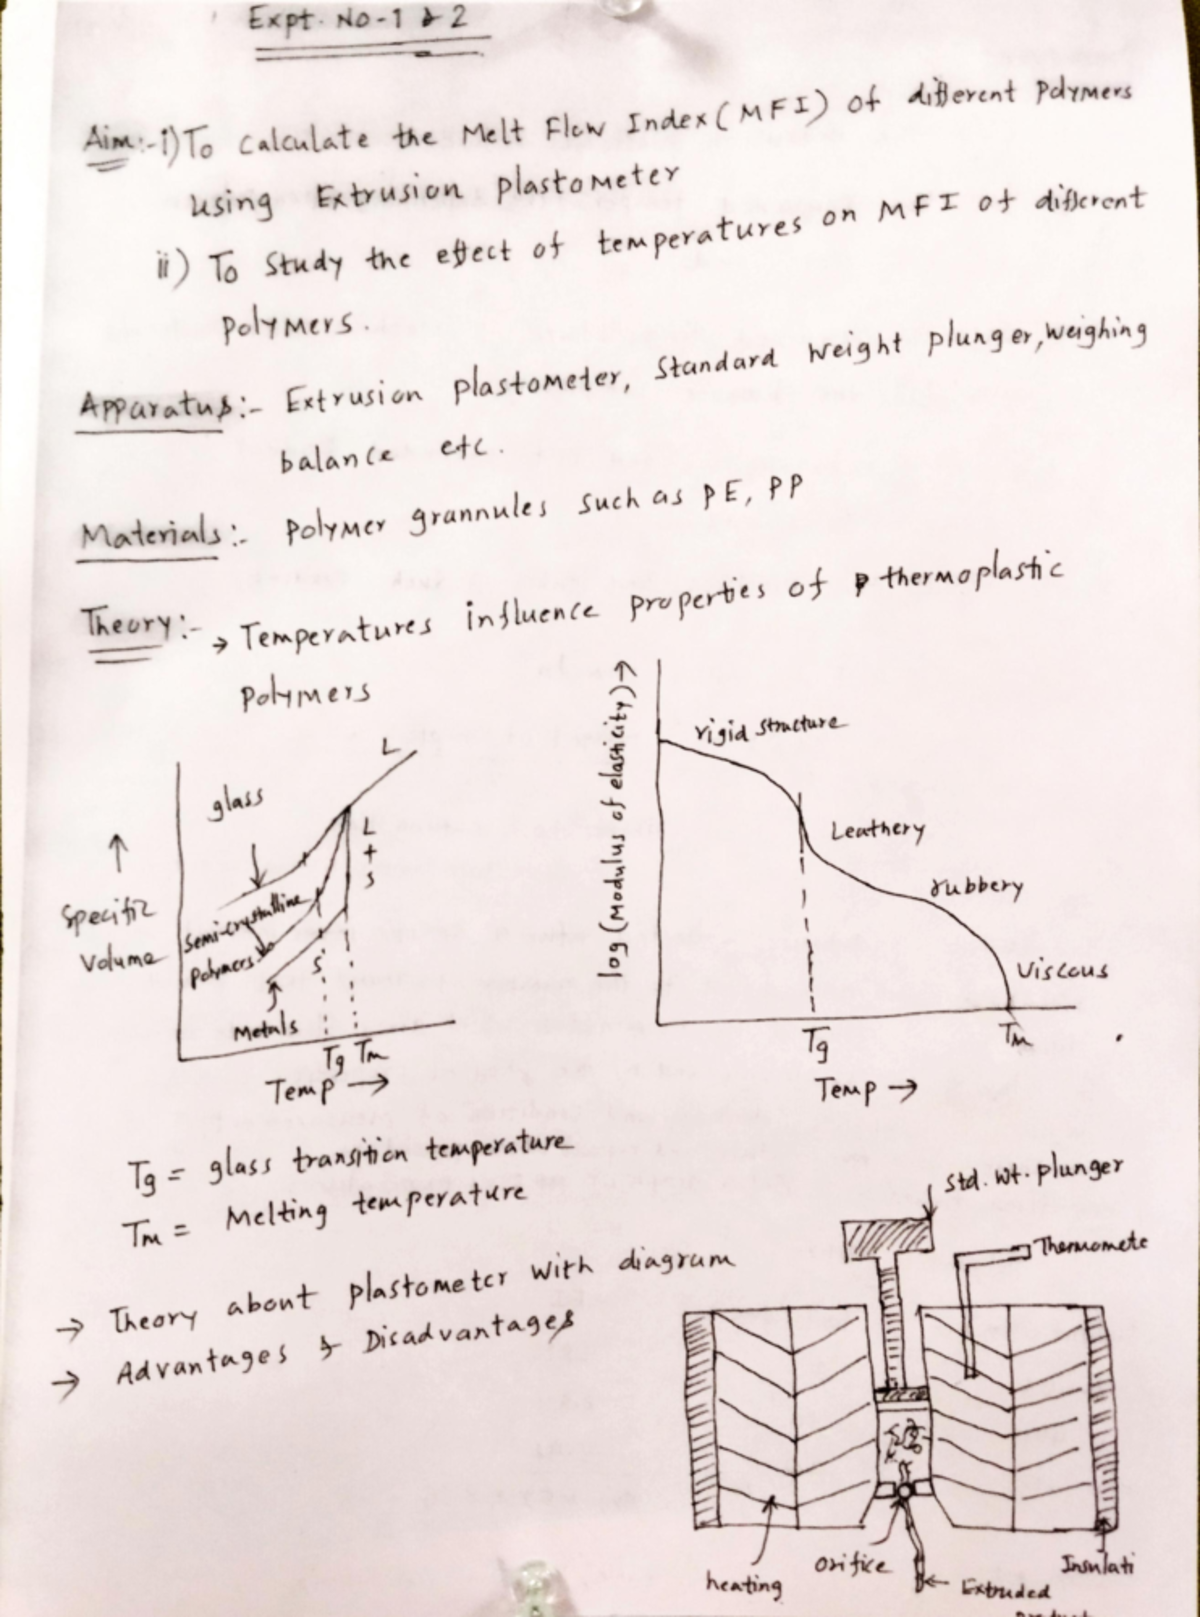 Expt. No-1 & 2
Aim:-i) To calculate the Melt Flow Index (MFI) of different Polymers
using Extrusion plastometer
ii) To study the effect of temperatures on MFI of different
polymers.
Apparatus:- Extrusion plastometer, Standard weight plunger, weighing
balance etc.
Materials:- Polymer grannules such as PE, PP
Theory:- → Temperatures influence properties of thermoplastic
Polymers
↑
Specific
Volume
glass
L
L
+
S
Semi-crystalline
polymers
S
Metals
Tg Tm
Temp →
log (Modulus of elasticity) →
rigid structure
Leathery
rubbery
Viscous
Tg
Tm
Temp →
Tg = glass transition temperature
Tm = Melting temperature
→ Theory about plastometer with diagram
→ Advantages & Disadvantages
Std. wt. plunger
Thermomete
heating
orifice
Extruded
Insulati